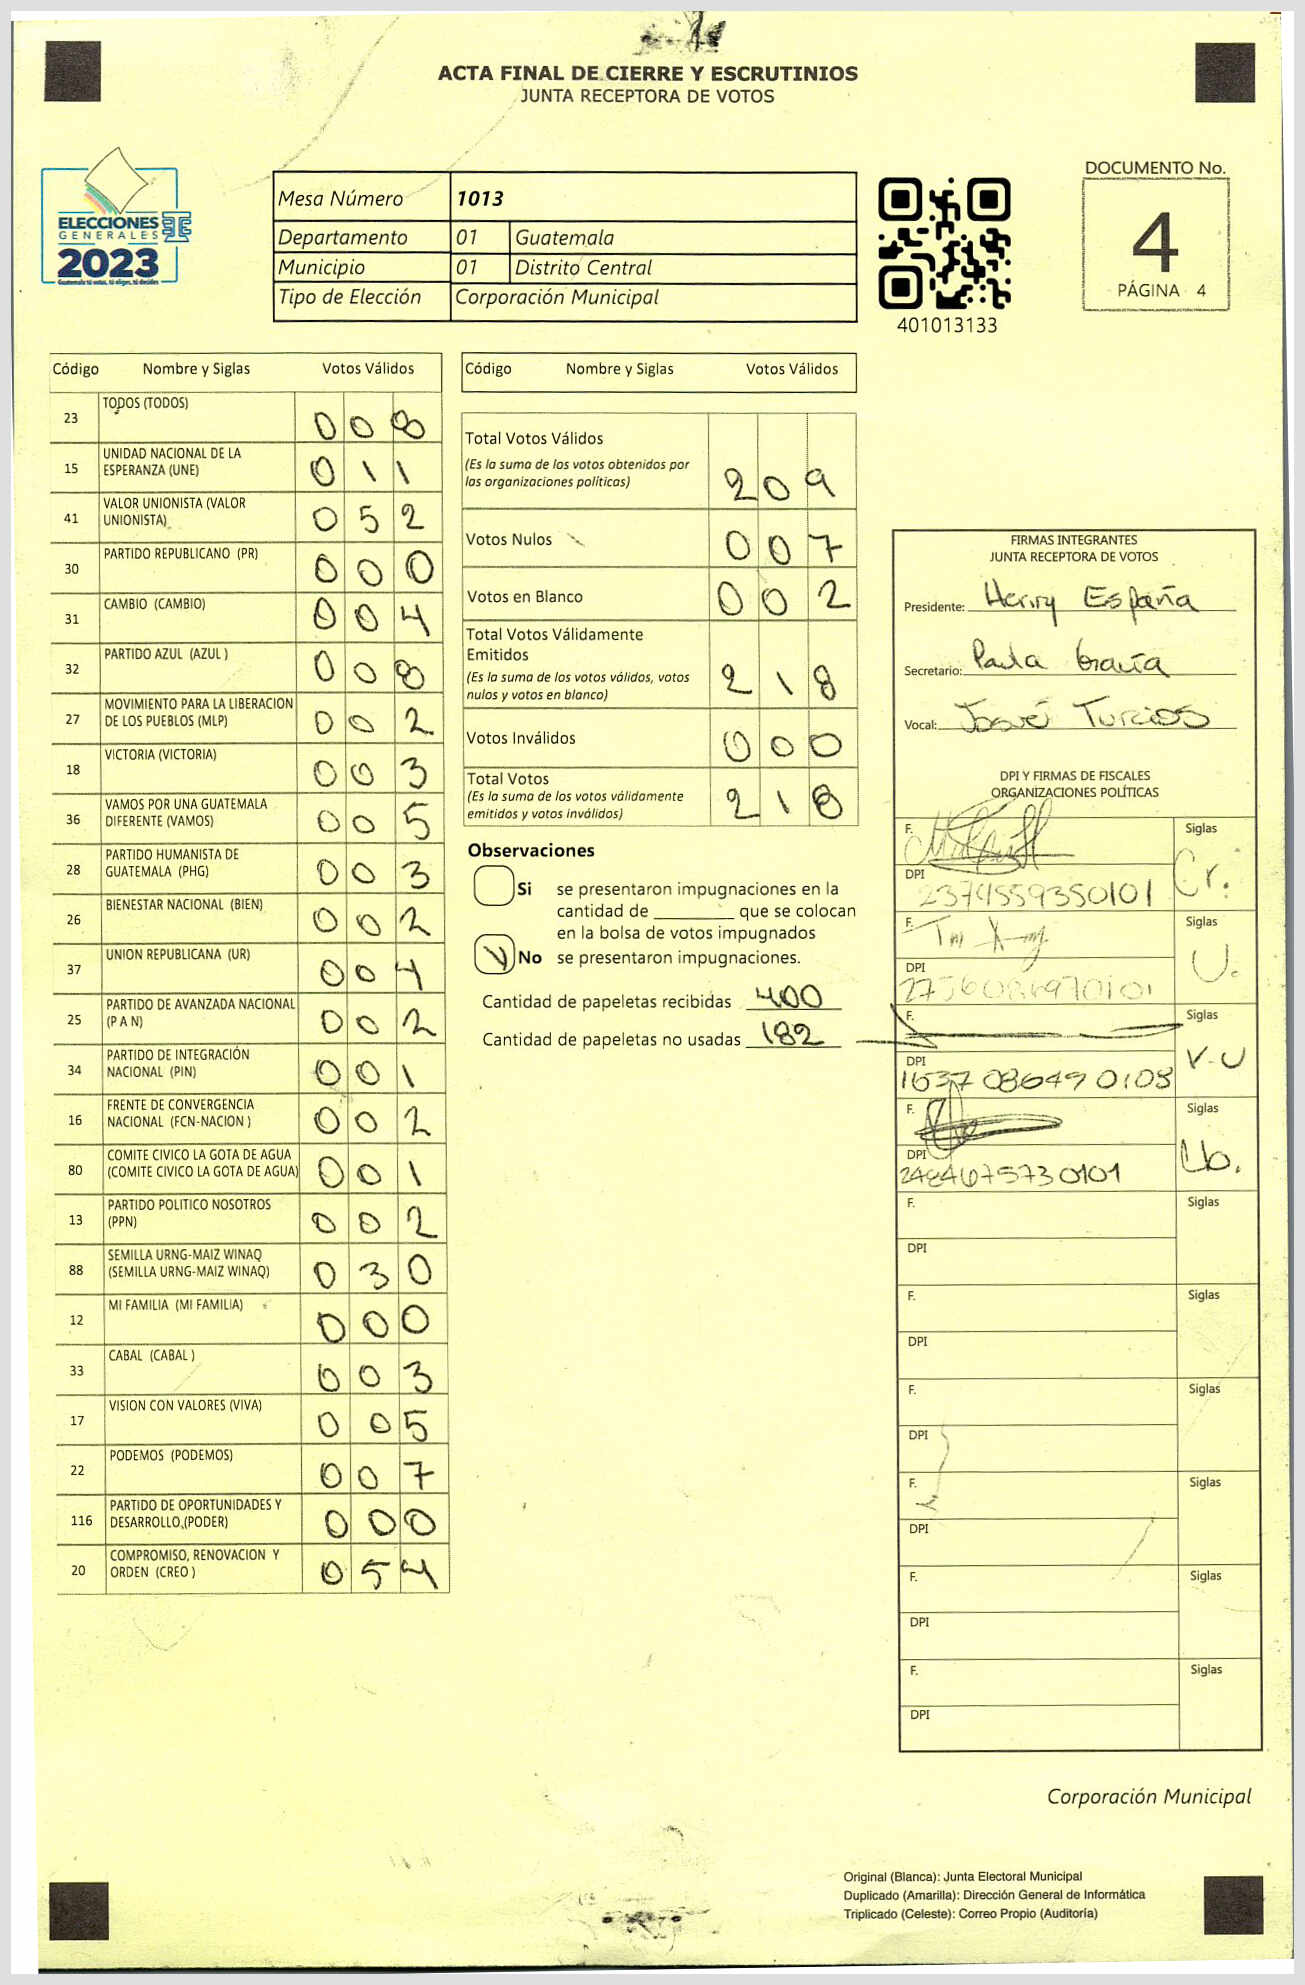 ACTA FINAL DE CIERRE Y ESCRUTINIOS
JUNTA RECEPTORA DE VOTOS
ELECCIONES
GENERALES
2023
Guatemala tú votas, tú eliges, tú decides
Mesa Número 1013
Departamento 01 Guatemala
Municipio 01 Distrito Central
Tipo de Elección Corporación Municipal
401013133
DOCUMENTO No.
4
PÁGINA 4
Código Nombre y Siglas Votos Válidos
23 TODOS (TODOS) 0 0 8
15 UNIDAD NACIONAL DE LA
ESPERANZA (UNE) 0 1 1
41 VALOR UNIONISTA (VALOR
UNIONISTA) 0 5 2
30 PARTIDO REPUBLICANO (PR) 0 0 0
31 CAMBIO (CAMBIO) 0 0 4
32 PARTIDO AZUL (AZUL ) 0 0 8
27 MOVIMIENTO PARA LA LIBERACION
DE LOS PUEBLOS (MLP) 0 0 2
18 VICTORIA (VICTORIA) 0 0 3
36 VAMOS POR UNA GUATEMALA
DIFERENTE (VAMOS) 0 0 5
28 PARTIDO HUMANISTA DE
GUATEMALA (PHG) 0 0 3
26 BIENESTAR NACIONAL (BIEN) 0 0 2
37 UNION REPUBLICANA (UR) 0 0 4
25 PARTIDO DE AVANZADA NACIONAL
(P A N) 0 0 2
34 PARTIDO DE INTEGRACIÓN
NACIONAL (PIN) 0 0 1
16 FRENTE DE CONVERGENCIA
NACIONAL (FCN-NACION ) 0 0 2
80 COMITE CIVICO LA GOTA DE AGUA
(COMITE CIVICO LA GOTA DE AGUA) 0 0 1
13 PARTIDO POLITICO NOSOTROS
(PPN) 0 0 2
88 SEMILLA URNG-MAIZ WINAQ
(SEMILLA URNG-MAIZ WINAQ) 0 3 0
12 MI FAMILIA (MI FAMILIA) 0 0 0
33 CABAL (CABAL ) 0 0 3
17 VISION CON VALORES (VIVA) 0 0 5
22 PODEMOS (PODEMOS) 0 0 7
116 PARTIDO DE OPORTUNIDADES Y
DESARROLLO,(PODER) 0 0 0
20 COMPROMISO, RENOVACION Y
ORDEN (CREO ) 0 5 4
Código Nombre y Siglas Votos Válidos
Total Votos Válidos
(Es la suma de los votos obtenidos por
las organizaciones políticas) 2 0 9
Votos Nulos 0 0 7
Votos en Blanco 0 0 2
Total Votos Válidamente
Emitidos
(Es la suma de los votos válidos, votos
nulos y votos en blanco) 2 1 8
Votos Inválidos 0 0 0
Total Votos
(Es la suma de los votos válidamente
emitidos y votos inválidos) 2 1 8
Observaciones
Si se presentaron impugnaciones en la
cantidad de ________ que se colocan
en la bolsa de votos impugnados
No se presentaron impugnaciones.
Cantidad de papeletas recibidas 400
Cantidad de papeletas no usadas 182
FIRMAS INTEGRANTES
JUNTA RECEPTORA DE VOTOS
Presidente: Henry España
Secretario: Paula García
Vocal: Josué Turcios
DPI Y FIRMAS DE FISCALES
ORGANIZACIONES POLÍTICAS
F. Siglas
Cr.
DPI
2374559350101
F. Siglas
U.
DPI
F. Siglas
V-U
DPI
1637086490108
F. Siglas
DPI
2484675730101
F. Siglas
DPI
F. Siglas
DPI
F. Siglas
DPI
F. Siglas
DPI
F. Siglas
DPI
F. Siglas
DPI
Corporación Municipal
Original (Blanca): Junta Electoral Municipal
Duplicado (Amarilla): Dirección General de Informática
Triplicado (Celeste): Correo Propio (Auditoría)